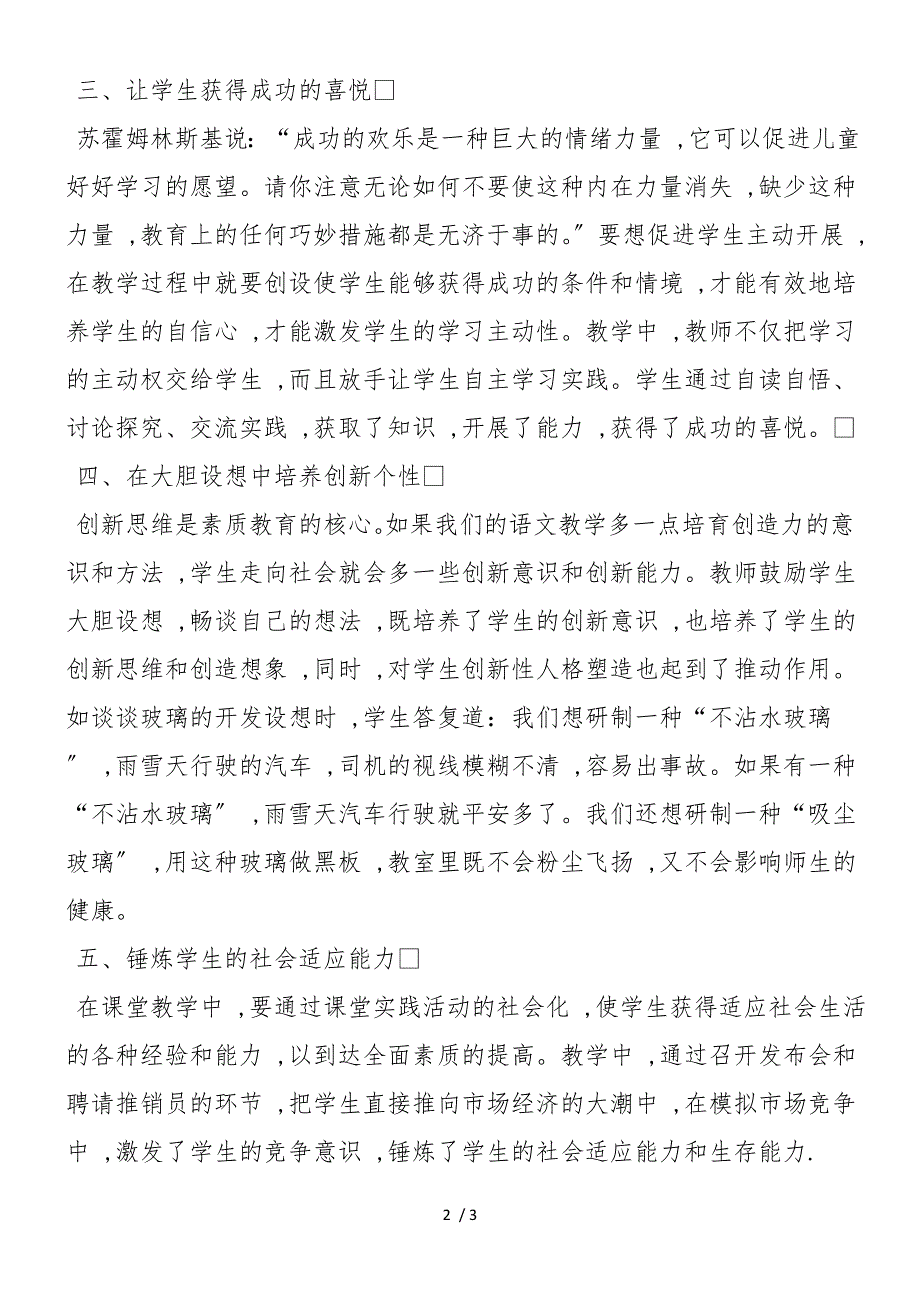 三、让学生获得成功的喜悦□
苏霍姆林斯基说：“成功的欢乐是一种巨大的情绪力量 ,它可以促进儿童
好好学习的愿望。请你注意无论如何不要使这种内在力量消失 ,缺少这种
力量 ,教育上的任何巧妙措施都是无济于事的。〞要想促进学生主动开展 ,
在教学过程中就要创设使学生能够获得成功的条件和情境 ,才能有效地培
养学生的自信心 ,才能激发学生的学习主动性。教学中 ,教师不仅把学习
的主动权交给学生 ,而且放手让学生自主学习实践。学生通过自读自悟、
讨论探究、交流实践 ,获取了知识 ,开展了能力 ,获得了成功的喜悦。□
四、在大胆设想中培养创新个性□
创新思维是素质教育的核心。如果我们的语文教学多一点培育创造力的意
识和方法 ,学生走向社会就会多一些创新意识和创新能力。教师鼓励学生
大胆设想 ,畅谈自己的想法 ,既培养了学生的创新意识 ,也培养了学生的
创新思维和创造想象 ,同时 ,对学生创新性人格塑造也起到了推动作用。
如谈谈玻璃的开发设想时 ,学生答复道：我们想研制一种“不沾水玻璃
〞 ,雨雪天行驶的汽车 ,司机的视线模糊不清 ,容易出事故。如果有一种
“不沾水玻璃〞 ,雨雪天汽车行驶就平安多了。我们还想研制一种“吸尘
玻璃〞 ,用这种玻璃做黑板 ,教室里既不会粉尘飞扬 ,又不会影响师生的
健康。
五、锤炼学生的社会适应能力□
在课堂教学中 ,要通过课堂实践活动的社会化 ,使学生获得适应社会生活
的各种经验和能力 ,以到达全面素质的提高。教学中 ,通过召开发布会和
聘请推销员的环节 ,把学生直接推向市场经济的大潮中 ,在模拟市场竞争
中 ,激发了学生的竞争意识 ,锤炼了学生的社会适应能力和生存能力.
2 / 3